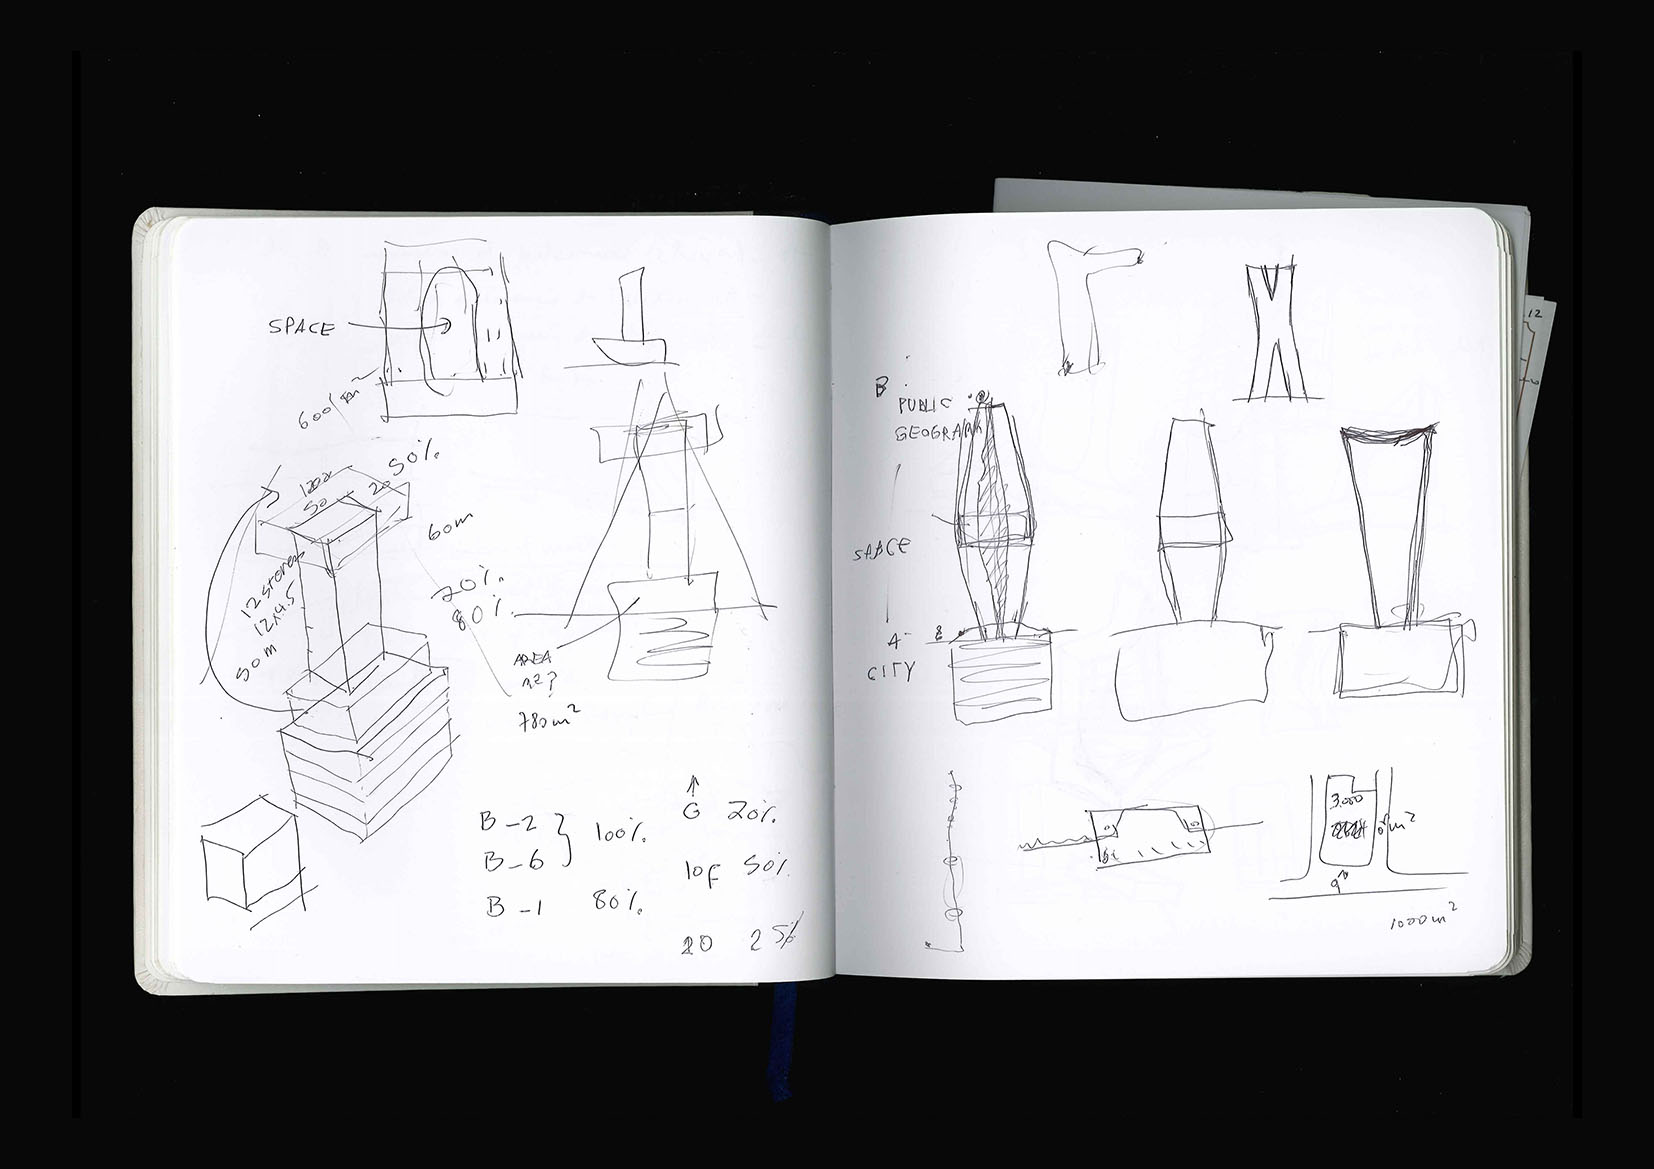 SPACE
600 m²
50%
20
50
60m
12 stores
12x4.5
50m
20%
80%
AREA
m²?
780m²
B-2
B-6
100%
B-1 80%
G 20%
10F 50%
20 25%
B
PUBLIC
GEOGRAPH
SPACE
A
CITY
3.000
m²
1000m²
12